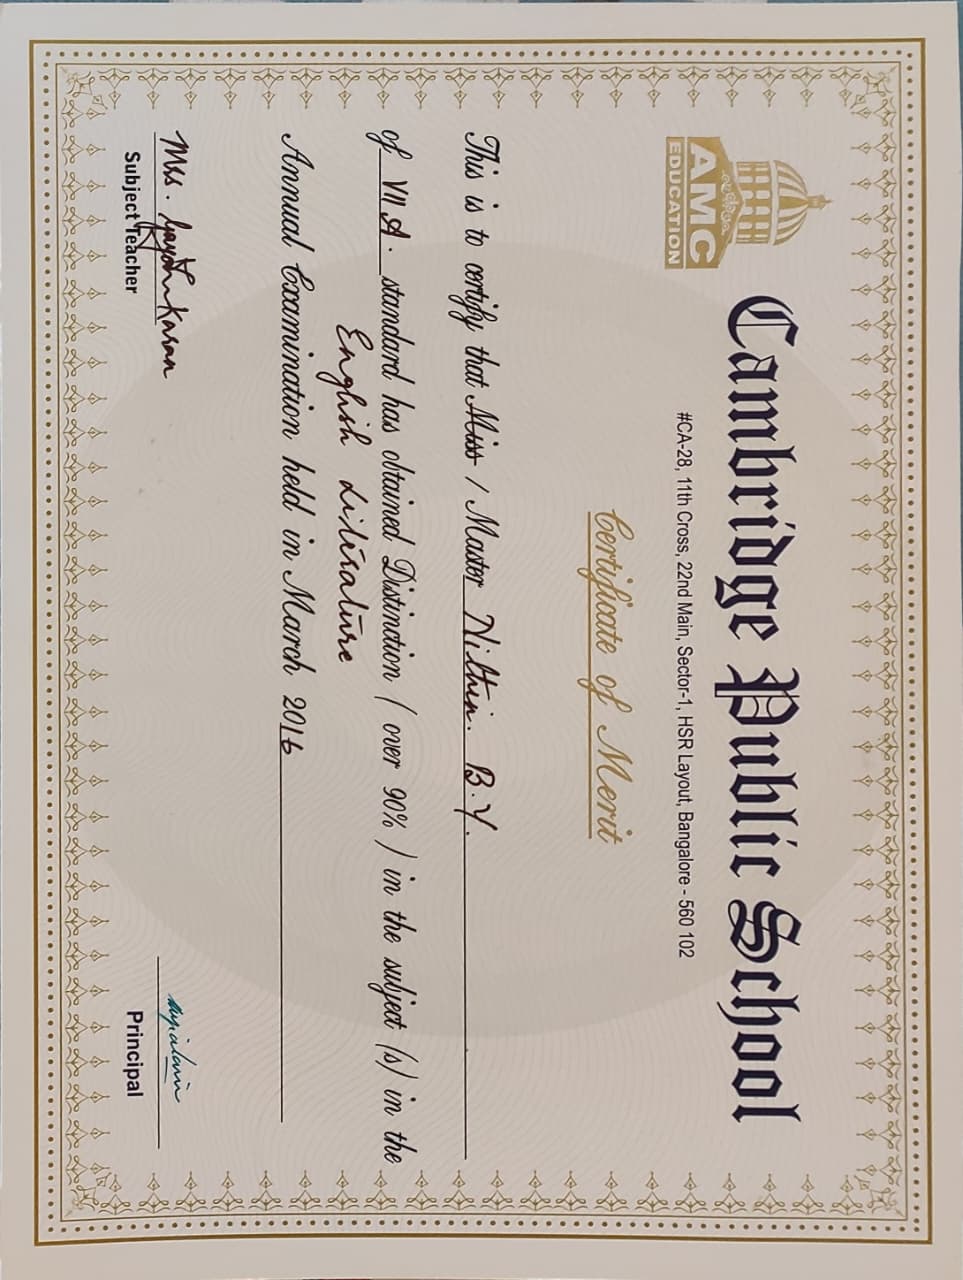 AMC
EDUCATION
Cambridge Public School
#CA-28, 11th Cross, 22nd Main, Sector-1, HSR Layout, Bangalore - 560 102
Certificate of Merit
This is to certify that Miss / Master Nithin. B.Y.
of VII A. standard has obtained Distinction ( over 90% ) in the subject (s) in the
English Literature
Annual Examination held in March 2016
Mrs.
Subject Teacher
Principal